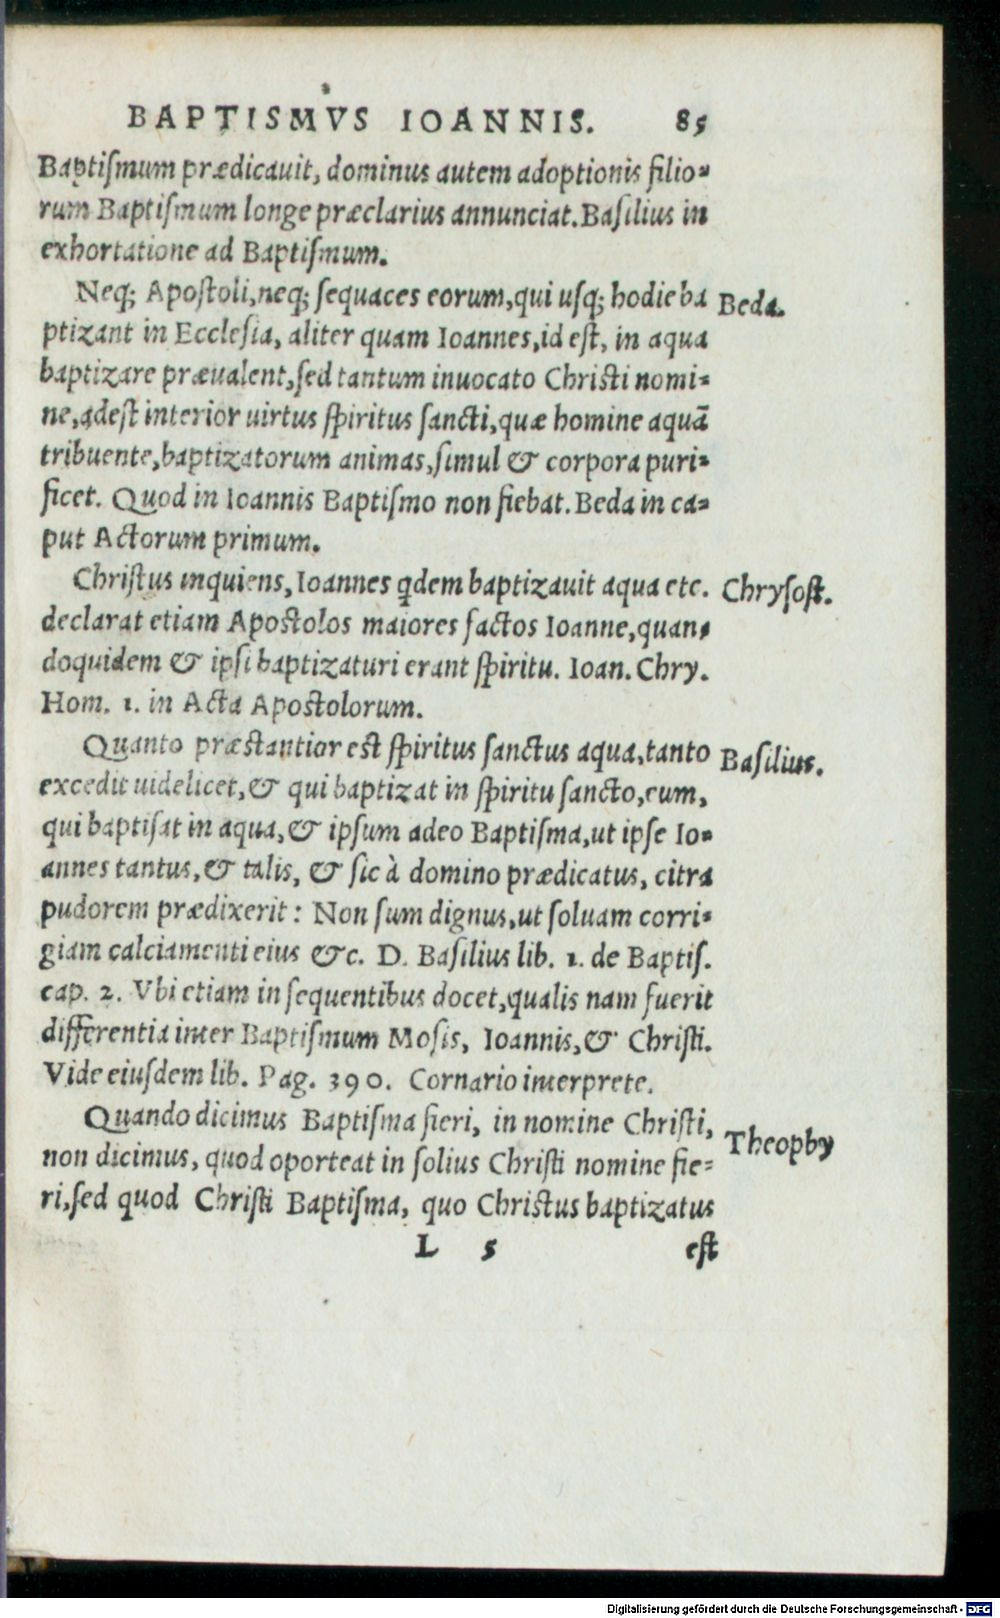 BAPTISMVS IOANNIS. 85
Baptiſmum prædicauit, dominus autem adoptionis filio-
rum Baptiſmum longe præclarius annunciat. Baſilius in
exhortatione ad Baptiſmum.
Neq; Apoſtoli, neq; ſequaces eorum, qui uſq; hodie ba
Beda.
ptizant in Eccleſia, aliter quam Ioannes, id eſt, in aqua
baptizare præualent, ſed tantum inuocato Chriſti nomi-
ne, adeſt interior uirtus ſpiritus ſancti, quæ homine aquã
tribuente, baptizatorum animas, ſimul & corpora puri-
ficet. Quod in Ioannis Baptiſmo non fiebat. Beda in ca-
put Actorum primum.
Chriſtus inquiens, Ioannes q̃dem baptizauit aqua etc.
Chryſoſt.
declarat etiam Apoſtolos maiores factos Ioanne, quan-
doquidem & ipſi baptizaturi erant ſpiritu. Ioan. Chry.
Hom. 1. in Acta Apoſtolorum.
Quanto præſtantior eſt ſpiritus ſanctus aqua, tanto
Baſilius.
excedit uidelicet, & qui baptizat in ſpiritu ſancto, eum,
qui baptiſat in aqua, & ipſum adeo Baptiſma, ut ipſe Io-
annes tantus, & talis, & ſic à domino prædicatus, citra
pudorem prædixerit: Non ſum dignus, ut ſoluam corri-
giam calciamenti eius &c. D. Baſilius lib. 1. de Baptiſ.
cap. 2. Vbi etiam in ſequentibus docet, qualis nam fuerit
differentia inter Baptiſmum Moſis, Ioannis, & Chriſti.
Vide eiuſdem lib. Pag. 390. Cornario interprete.
Quando dicimus Baptiſma fieri, in nomine Chriſti,
Theophy
non dicimus, quod oporteat in ſolius Chriſti nomine fie-
ri, ſed quod Chriſti Baptiſma, quo Chriſtus baptizatus
L 5 eſt
Digitalisierung gefördert durch die Deutsche Forschungsgemeinschaft - DFG